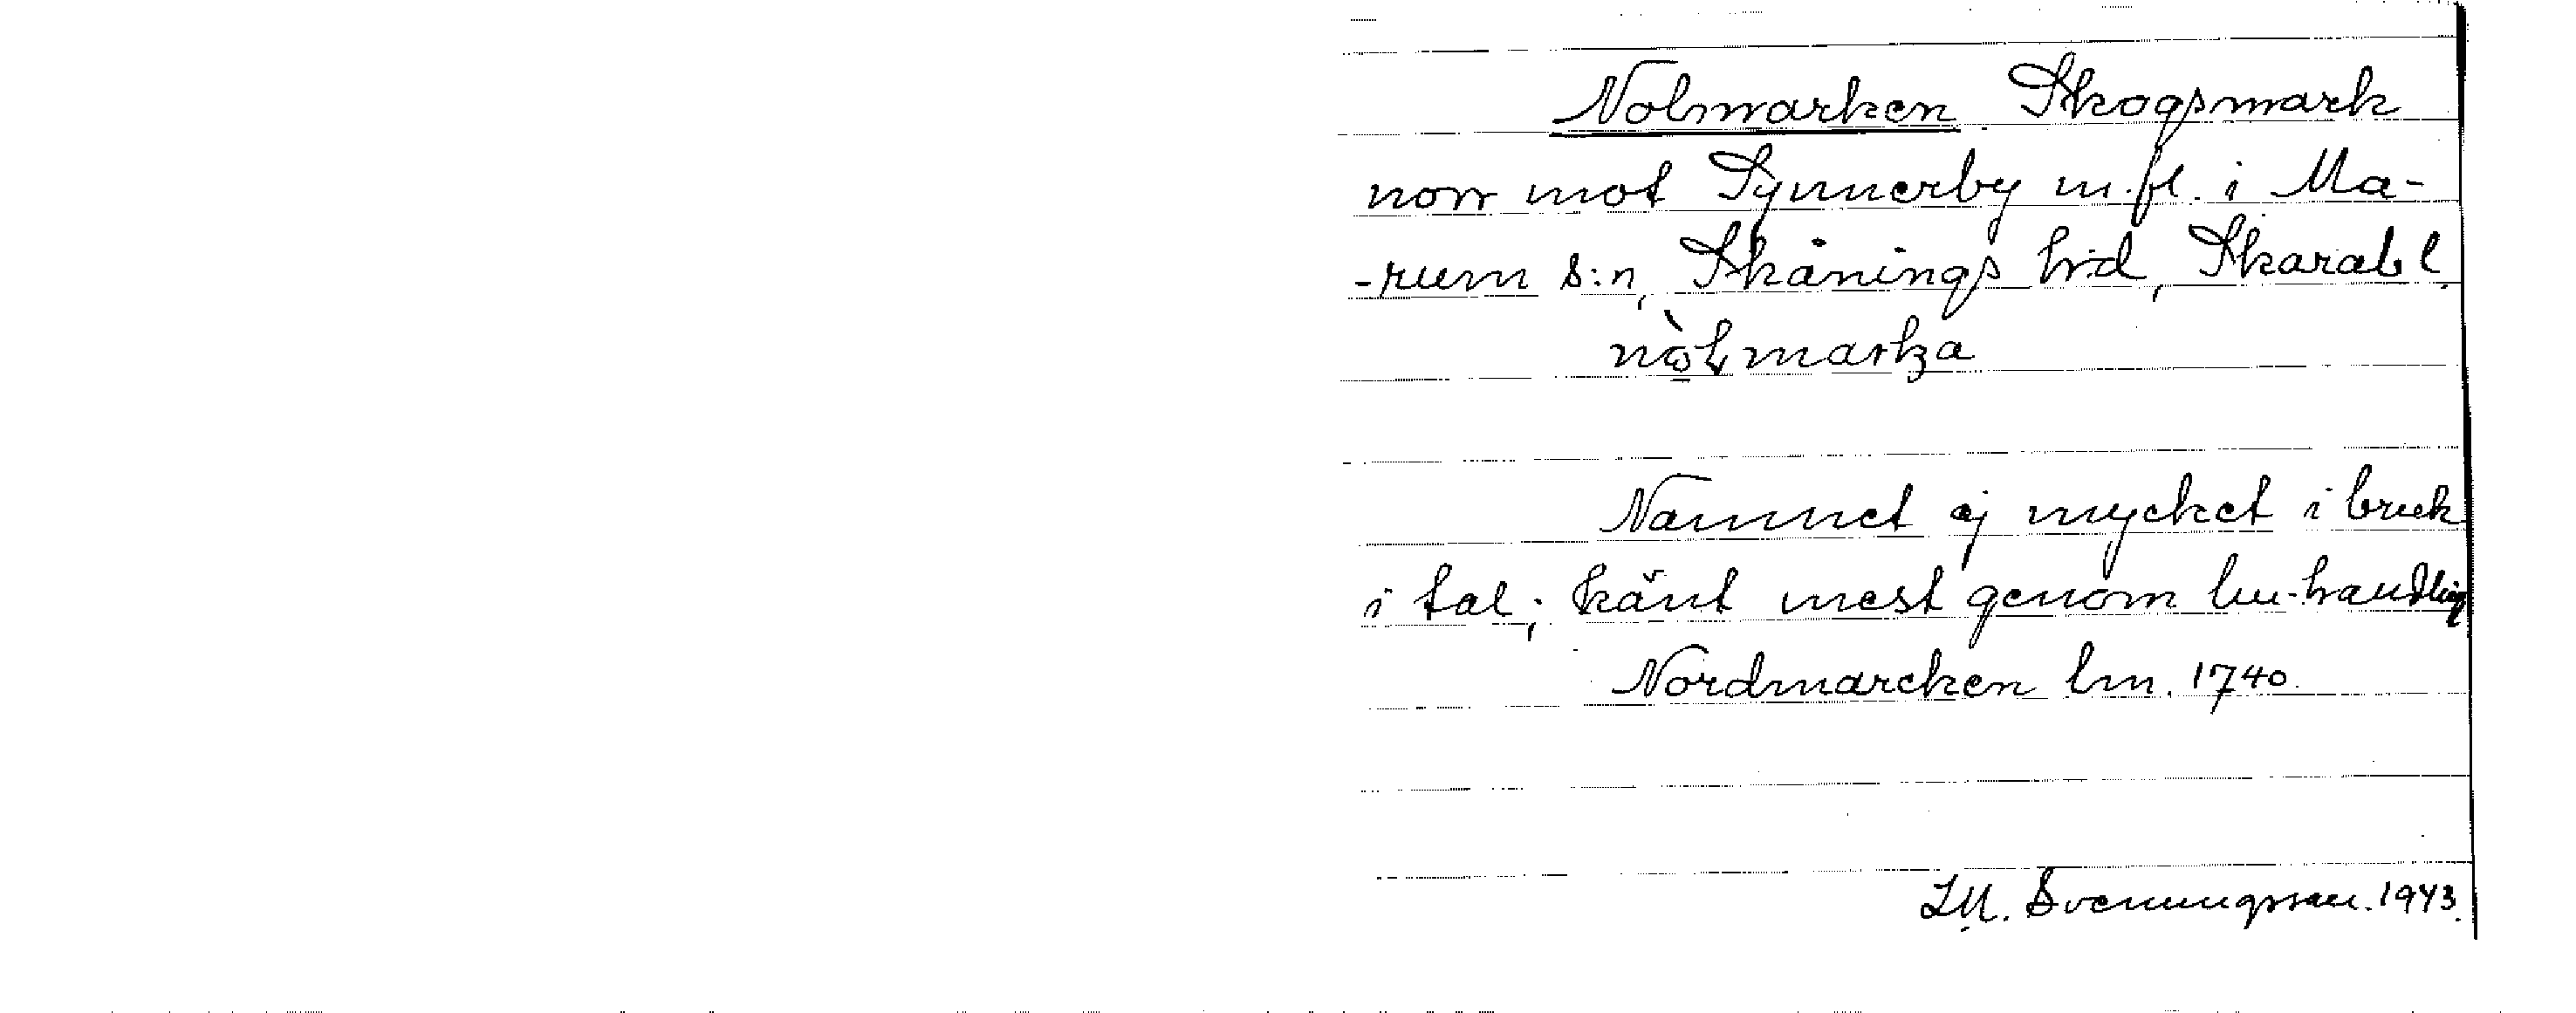 Nolmarken. Skogsmark
norr mot Synnerby m.fl. i Ma-
-rum s:n, Skånings hrd, Skarab l.
nò̱lmarka
Namnet ej mycket i bruk
i tal; känt mest genom lm-handling
Nordmarcken lm. 1740.
I.M. Svenungsson. 1943.